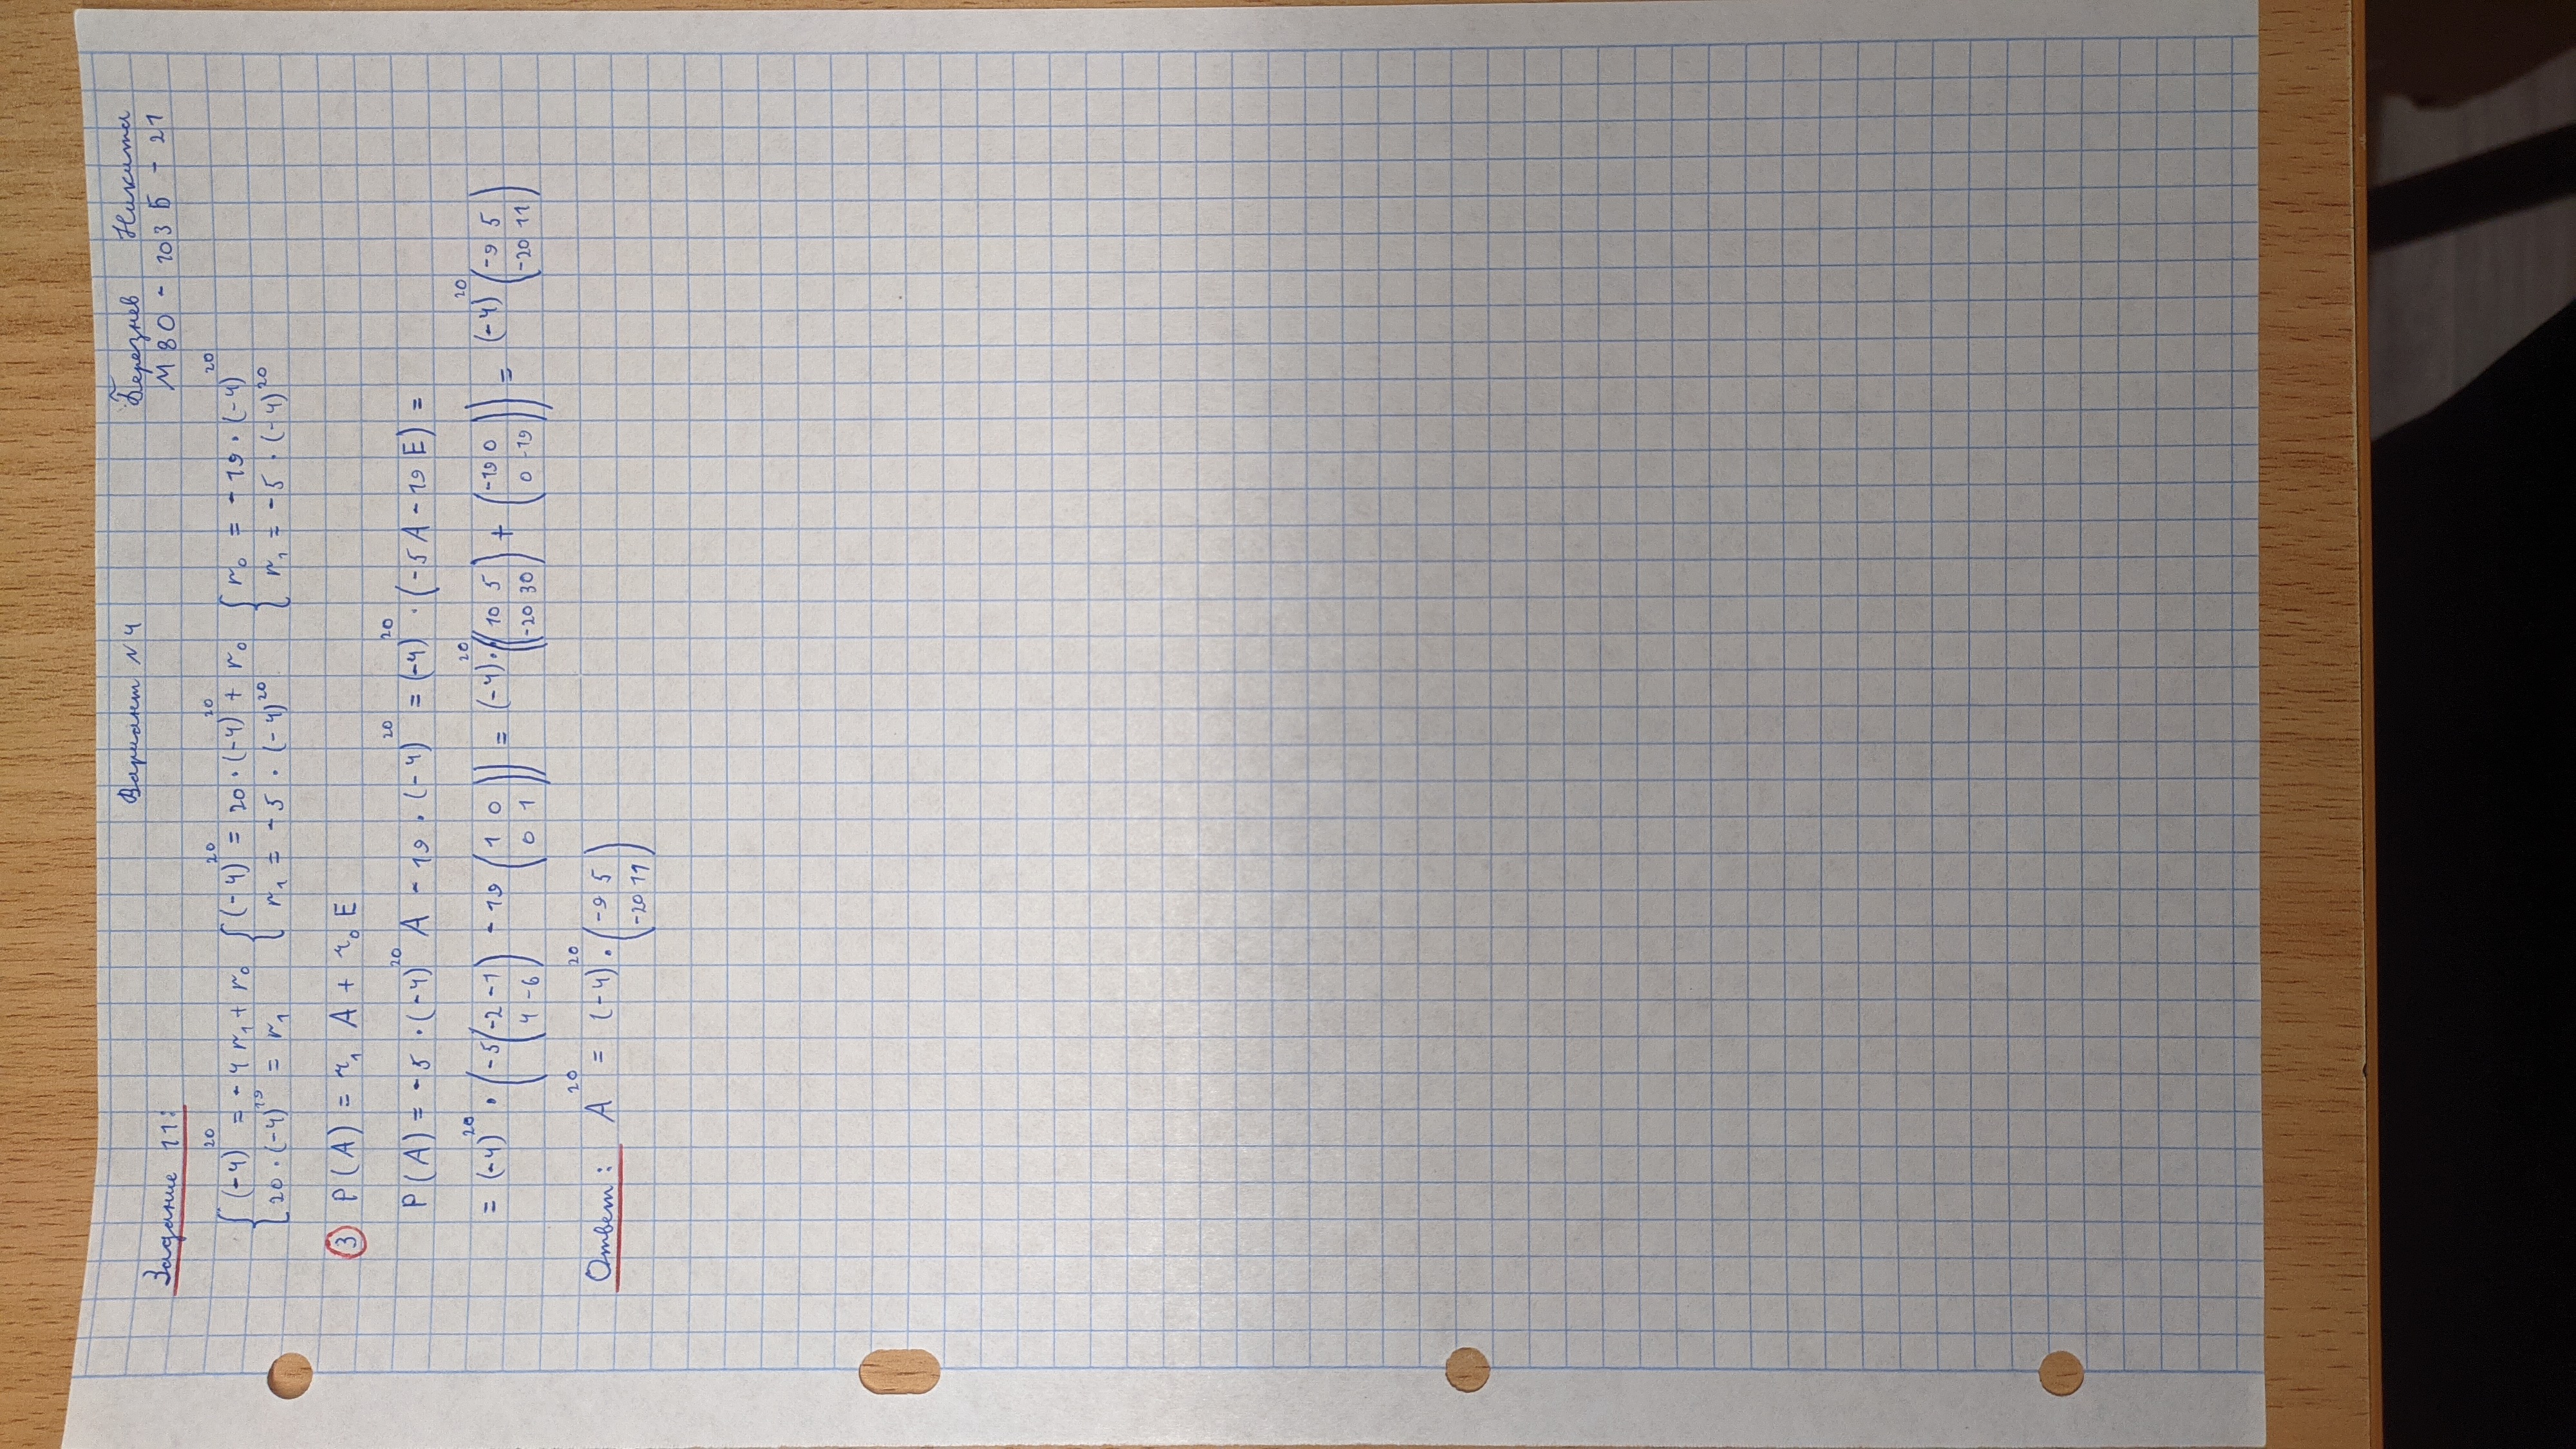 Вариант №4 Березнев Никита
Задание 11: М80 - 103Б - 21
{ (-4)^20 = -4 r₁ + r₀ { (-4)^20 = 20·(-4)^20 + r₀ { r₀ = -19·(-4)^20
{ 20·(-4)^19 = r₁ { r₁ = -5·(-4)^20 { r₁ = -5·(-4)^20
③ P(A) = r₁ A + r₀ E
P(A) = -5·(-4)^20 A - 19·(-4)^20 = (-4)^20·(-5A - 19E) =
= (-4)^20·(-5(-2 -1; 4 -6) - 19(1 0; 0 1)) = (-4)^20·((10 5; -20 30) + (-19 0; 0 -19)) = (-4)^20 (-9 5; -20 11)
Ответ: A^20 = (-4)^20·(-9 5; -20 11)